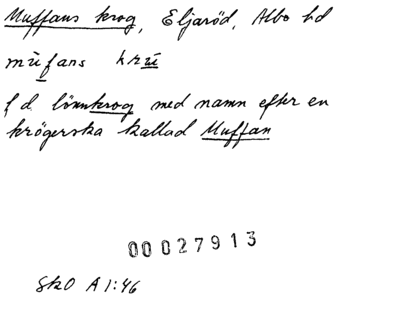 Muffans krog, Eljaröd, Albo hd
mufans krū
f d. lönnkrog med namn efter en
krögerska kallad Muffan
00027913
SkO A 1:46